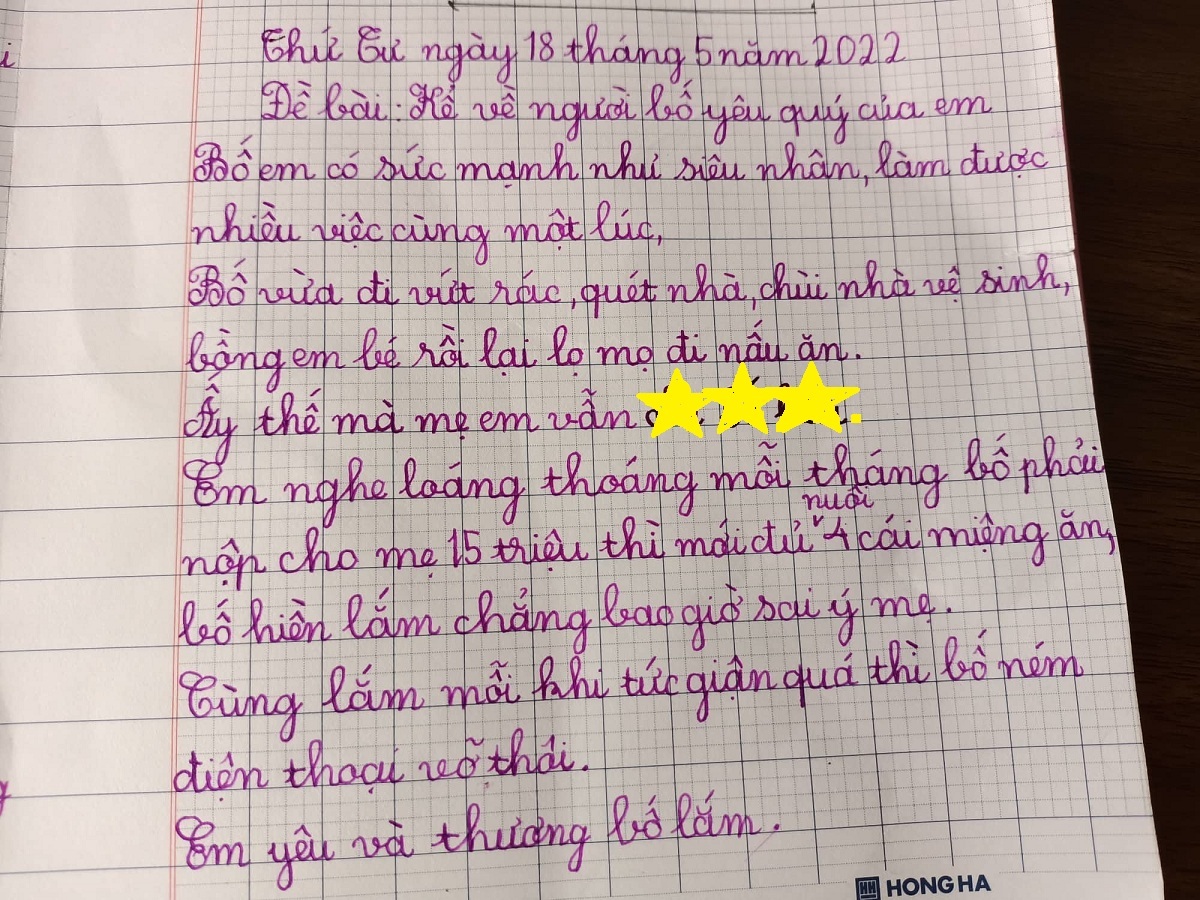 Thứ Tư ngày 18 tháng 5 năm 2022
Đề bài: Kể về người bố yêu quý của em
Bố em có sức mạnh như siêu nhân, làm được
nhiều việc cùng một lúc,
Bố vừa đi vứt rác, quét nhà, chùi nhà vệ sinh,
bồng em bé rồi lại lọ mọ đi nấu ăn.
Ấy thế mà mẹ em vẫn
Em nghe loáng thoáng mỗi tháng bố phải
nuôi
nộp cho mẹ 15 triệu thì mới đủ 4 cái miệng ăn,
bố hiền lắm chẳng bao giờ sai ý mẹ.
Cùng lắm mỗi khi tức giận quá thì bố ném
điện thoại vỡ thôi.
Em yêu và thương bố lắm.
HH HONG HA